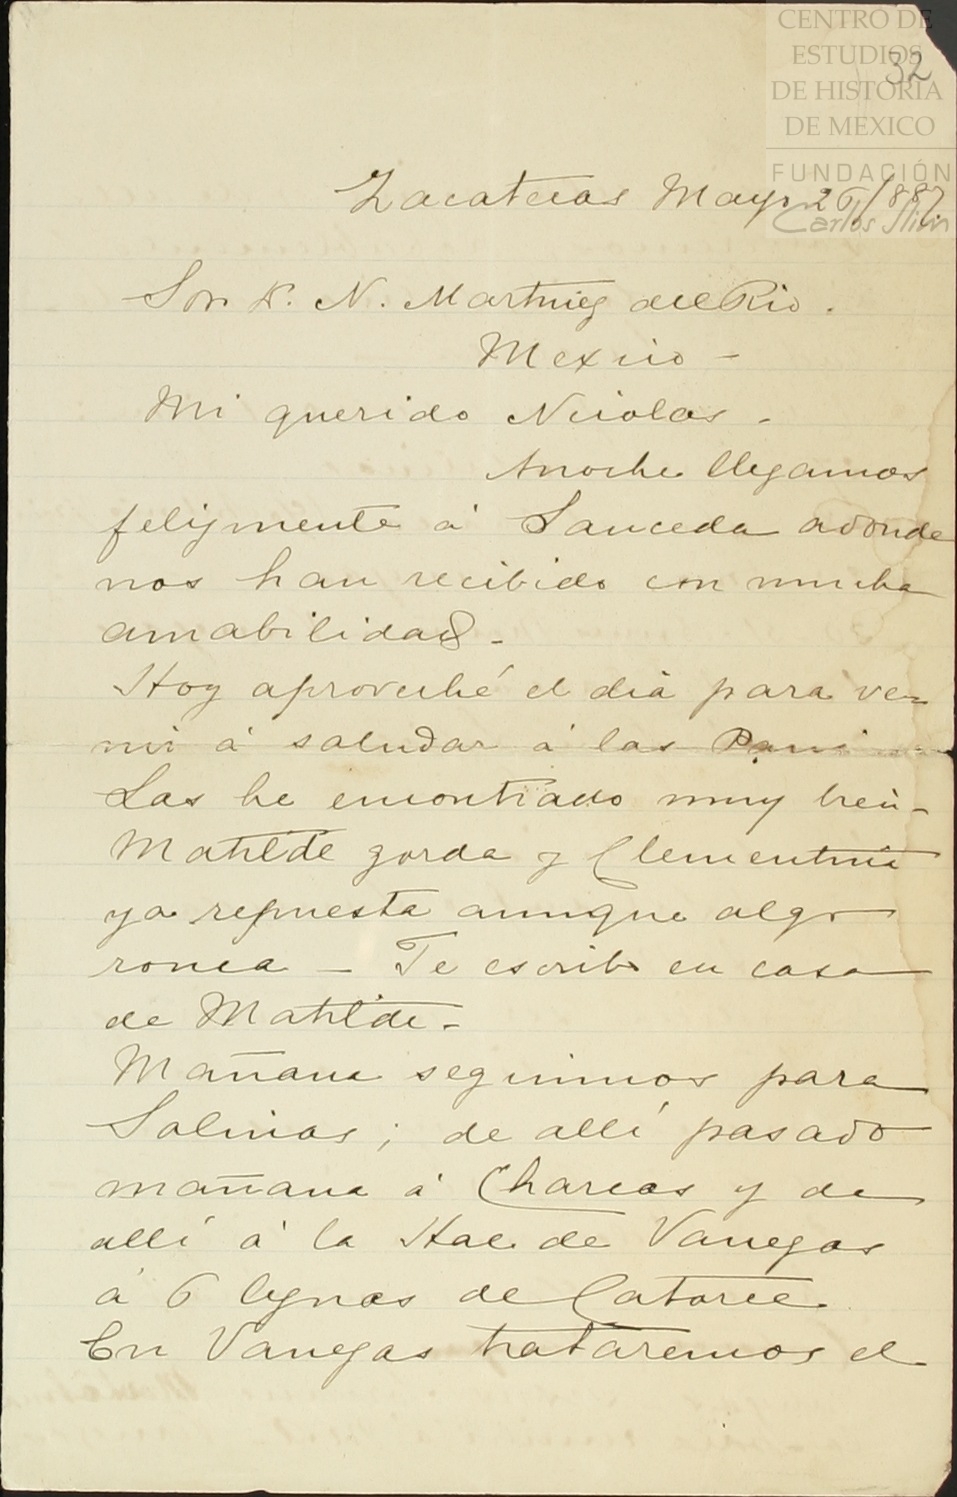 CENTRO DE
ESTUDIOS
DE HISTORIA
DE MEXICO
FUNDACIÓN
Carlos Slim
32
Zacatecas Mayo 26/887.
Sor. D. N. Martinez del Rio.
Mexico -
Mi querido Nicolas -
Anoche llegamos
felizmente á Sauceda adonde
nos han recibido con mucha
amabilidad -
Hoy aproveché el dia para ve-
nir á saludar á las
Las he encontrado muy bien -
Matilde gorda y Clementina
ya repuesta aunque algo
ronca - Te escribo en casa
de Matilde -
Mañana seguimos para
Salinas; de allí pasado
mañana á Charcas y de
allí á la Hac. de Vanegas
á 6 leguas de Catorce
En Vanegas trataremos el